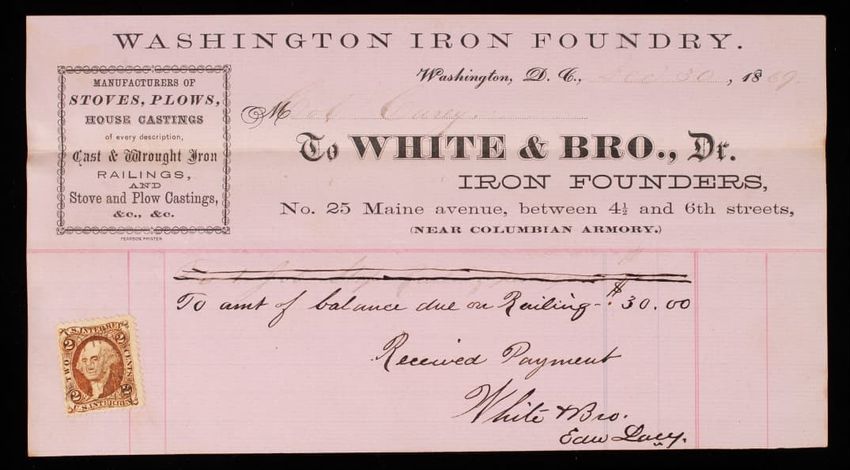 WASHINGTON IRON FOUNDRY.
MANUFACTURERS OF
STOVES, PLOWS,
HOUSE CASTINGS
of every description,
Cast & Wrought Iron
RAILINGS,
AND
Stove and Plow Castings,
&c., &c.
PEARSON, PRINTER
Washington, D. C., Dec 30, 1869.
M Col Carey.
To WHITE & BRO., Dr.
IRON FOUNDERS,
No. 25 Maine avenue, between 4½ and 6th streets,
(NEAR COLUMBIAN ARMORY.)
To amt of balance due on Railing - $30.00
Received Payment
White & Bro.
Edw Lacy.
U.S. INTER. REV.
2 2
TWO CENTS
2 2
U.S. INTER. REV.